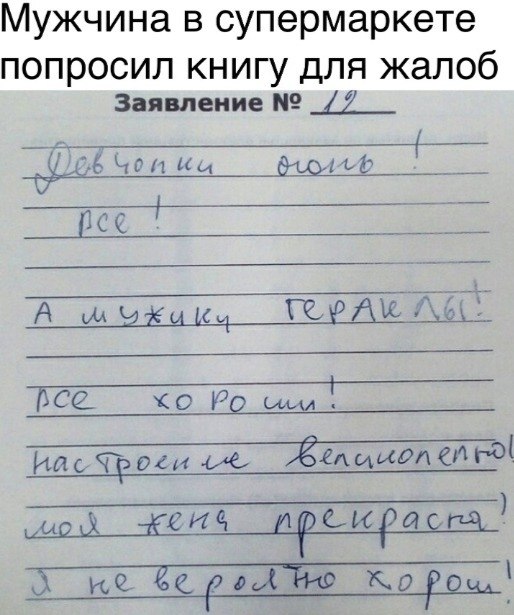 Мужчина в супермаркете
попросил книгу для жалоб
Заявление № 12
Девчопки огонь!
Все!
А мужики ГЕРАКЛЫ!
Все хороши!
настроение великопепно!
моя жена прекрасна!
Я не вероятно хорош!